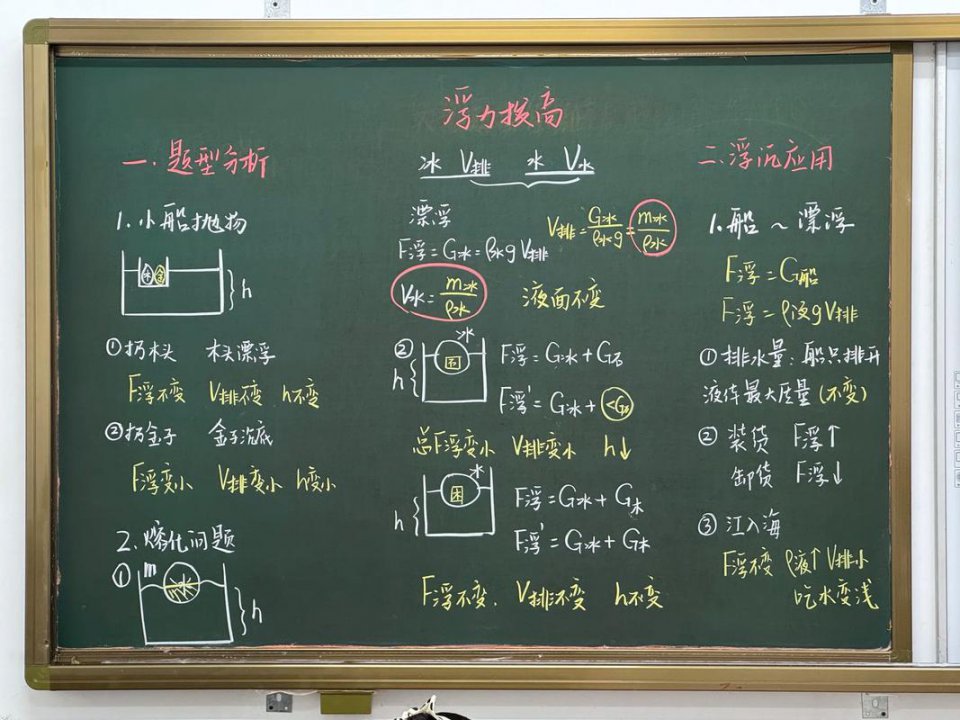 浮力拔高
一. 题型分析
1. 小船抛物
木 金
h
①扔木头 木头漂浮
F浮不变 V排不变 h不变
②扔金子 金子沉底
F浮变小 V排变小 h变小
2. 熔化问题
①
m
冰
h
冰 V排 水 V水
漂浮
F浮=G冰=ρ水gV排
V排=G冰/ρ水g=m冰/ρ水
V水=m冰/ρ水 液面不变
②
冰
石
h
F浮=G冰+G石
F浮'=G冰+<G石
总F浮变小 V排变小 h↓
冰
木
h
F浮=G冰+G木
F浮'=G冰+G木
F浮不变. V排不变 h不变
二.浮沉应用
1.船~漂浮
F浮=G船
F浮=ρ液gV排
①排水量:船只排开
液体最大质量(不变)
②装货 F浮↑
卸货 F浮↓
③江入海
F浮不变 ρ液↑ V排小
吃水变浅